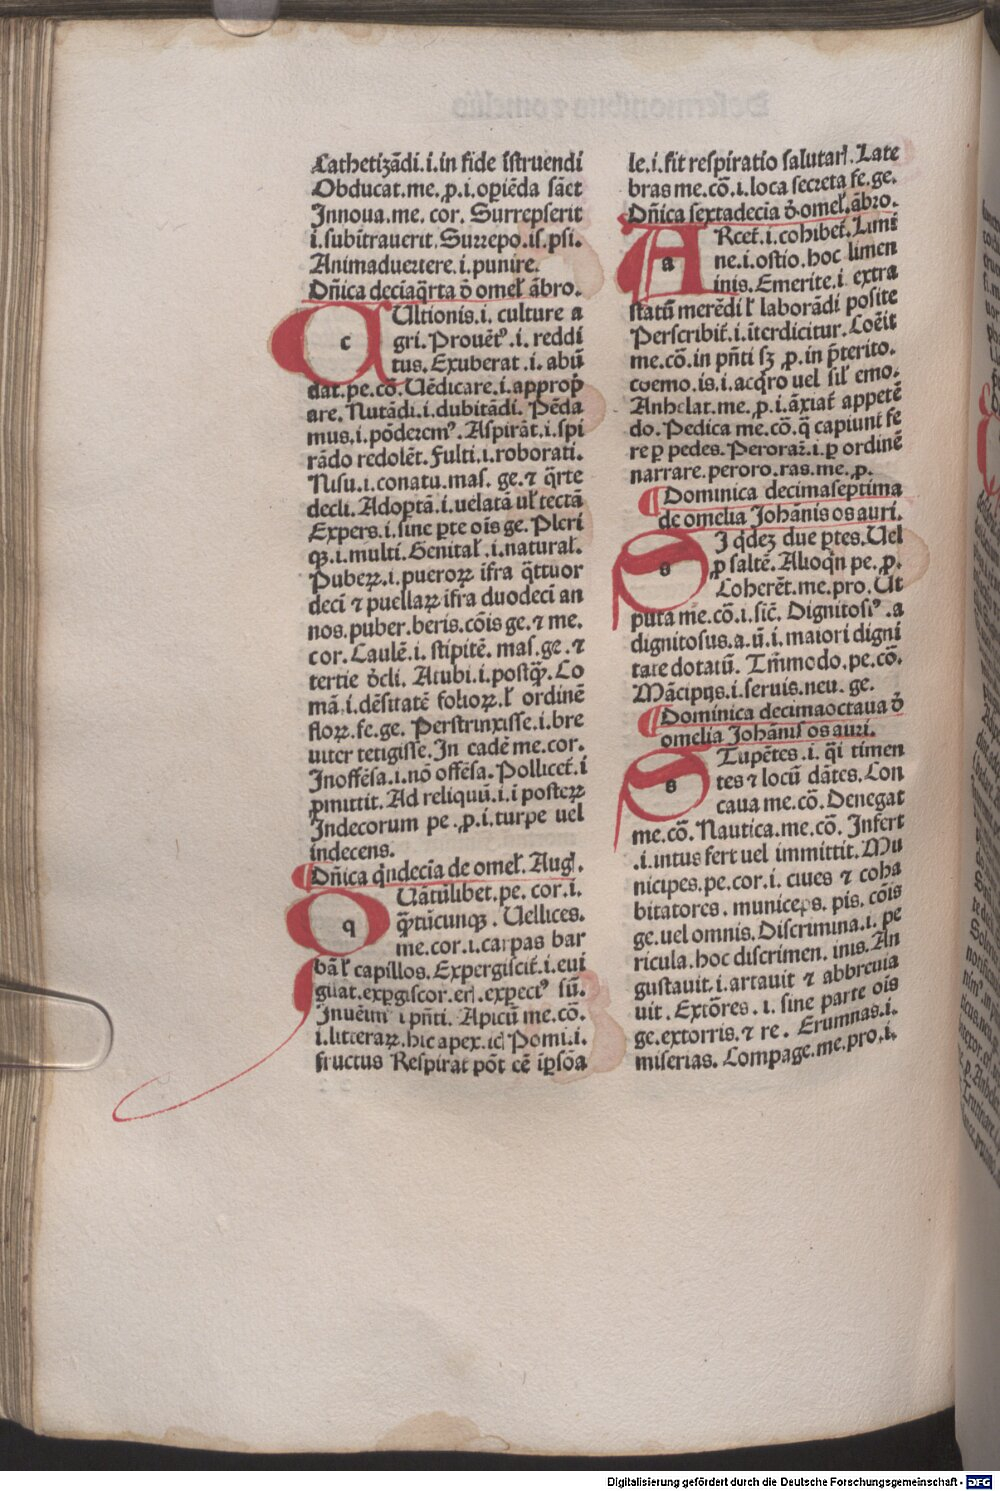 Cathetizãdi.i.in fide ĩstruendi
Obducat.me.ꝓ.i.oꝑiẽda sãct
Innoua.me. cor. Surrepserit
i.subĩtrauerit. Surrepo.is.psi.
Animaduertere.i.punire.
Dñica deciaq̃rta ð omel̕ ãbro.
c Ultionis.i. culture a
gri. Prouẽtꝰ.i. reddi
tus. Exuberat.i. abũ
dat.pe.cõ. Uẽdicare.i.approp̃
are. Nutãdi.i.dubitãdi. Pẽda
mus.i.põderemꝰ. Aspirãt.i.spi
rãdo redolẽt. Fulti.i.roborati.
Nisu.i.conatu.mas. ge.⁊ q̃rte
decli. Adoptã.i.uelatã ul̕ tectã
Expers.i.sine ꝑte oĩs ge. Pleri
qꝫ.i.multi. Genital̕.i.natural̕.
Puberꝝ.i.puerorꝝ ĩfra q̃ttuor
decĩ ⁊ puellarꝝ ĩfra duodecĩ an
nos.puber.beris.cõis ge.⁊ me.
cor. Caulẽ.i. stipitẽ. mas.ge.⁊
tertie ðcli. Atubi.i.postq̃ꝫ. Co
mã.i.dẽsitatẽ foliorꝝ.l̕ ordinẽ
florꝝ.fe.ge. Perstrinxisse.i.bre
uiter tetigisse. In eadẽ me.cor.
Inoffẽsa.i.nõ offẽsa. Pollicet̕.i
ꝓmittit. Ad reliquũ.i.i posterꝝ
Indecorum pe.ꝓ.i.turpe uel
indecens.
Dñica q̃ndecia de omel̕. Aug̕.
q Uãtũlibet.pe. cor.i.
q̃ꝫtũcunqꝫ. Uellices.
me.cor.i.carpas bar
bã l̕ capillos. Expergiscit̕.i.eui
gilat.exꝑgiscor.eri.expectꝰ sũ.
Inuẽim i pñti. Apicũ me.cõ.
i.litterarꝝ.hic apex.ic̕ Pomi.i.
fructus Respirat põt cẽ iꝑsõa
le.i.fit respiratio salutar̕. Late
bras me.cõ.i.loca secreta fe.ge.
Dñica sextadecia ð omel̕.ãbro.
a Rcet̕.i.cohibet̕. Limi
ne.i.ostio.hoc limen
inis. Emerite.i extra
statũ merẽdi l̕ laborãdi posite
Perscribit̕.i.ĩterdicitur. Coẽit
me.cõ.in pñti sꝫ ꝓ.in p̃terito.
coemo.is.i.acq̃ro uel sil̕ emo.
Anhelat.me.ꝓ.i.ãxiat̕ appetẽ
do. Pedica me.cõ.q̃ capiunt̕ fe
re ꝑ pedes. Perorar̕.i.ꝑ ordinẽ
narrare.peroro.ras.me.ꝓ.
Dominica decimaseptima
de omelia Johãnis os auri.
s I q̃deꝫ due ꝑtes. Uel
ꝓ saltẽ. Alioqñ pe.ꝓ.
Coherẽt.me.pro. Ut
puta me.cõ.i.sic̃. Dignitosiꝰ.a
dignitosus.a.ũ.i.maiori digni
tate dotatũ. Tm̃modo.pe.cõ.
Mãcipijs.i.seruis.neu. ge.
Dominica decimaoctaua ð
omelia Johãnis os auri.
s Tupẽtes.i. q̃i timen
tes ⁊ locũ dãtes. Con
caua me.cõ. Denegat
me.cõ. Nautica.me.cõ. Infert
.i.intus fert uel immittit. Mu
nicipes.pe.cor.i. ciues ⁊ coha
bitatores. municeps. pis. cõis
ge.uel omnis. Discrimina.i. pe
ricula.hoc discrimen. inis. An
gustauit.i.artauit ⁊ abbreuia
uit. Extõres.i. sine parte oĩs
ge.extorris.⁊ re. Erumnas.i.
miserias. Compage.me.pro.i.
Digitalisierung gefördert durch die Deutsche Forschungsgemeinschaft - DFG